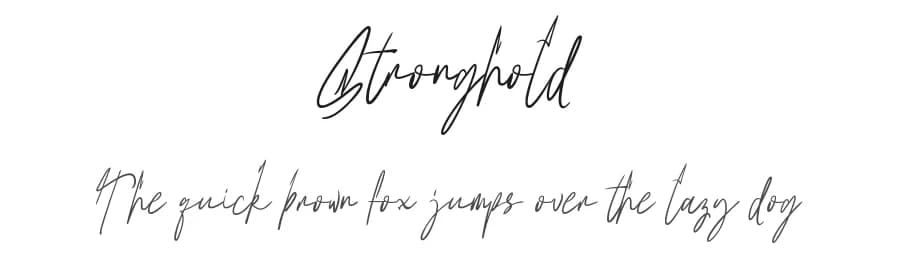 Stronghold
The quick brown fox jumps over the lazy dog